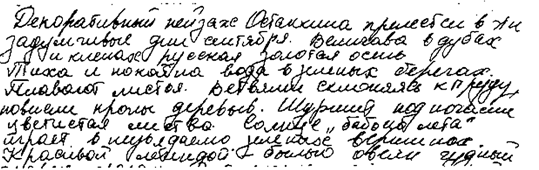 Декоративный пейзаж Останкина прелестен в эти
задумчивые дни сентября. Величава в дубах
и кленах русская золотая осень
Тиха и покатна вода в зеленых берегах.
Плавают листья. Ветвями склоняясь к пруду,
повисли кроны деревьев. Шуршит под ногами
цветистая листва. Солнце „бабьего лета"
играет в поредевших вершинах.
Красивой легендой - былью овеян чудный